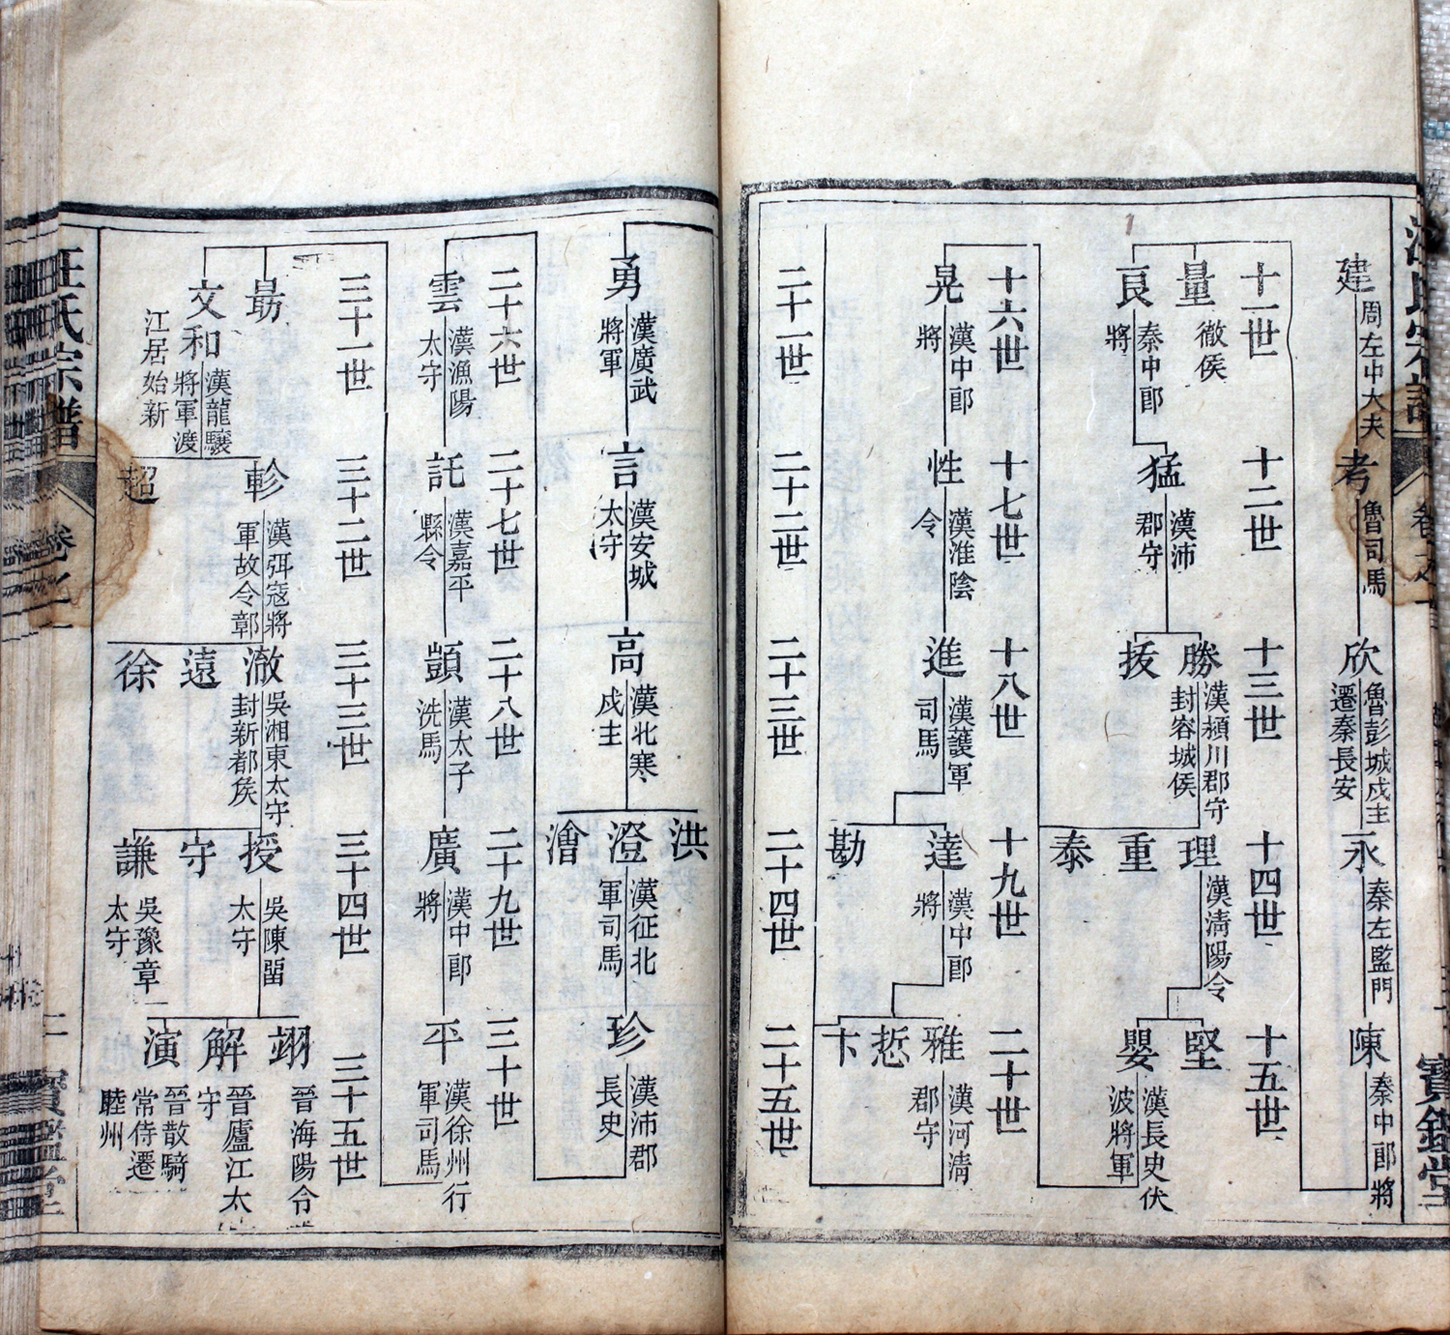 建 周左中大夫
考 魯司馬
欣 魯彭城戍主遷秦長安
永 秦左監門
陳 秦中郎將
十一世
十二世
十三世
十四世
十五世
量 徹侯
良 秦中郎將
猛 漢沛郡守
勝 漢潁川郡守封容城侯
援
理 漢清陽令
重
泰
堅
嬰 漢長史伏波將軍
十六世
十七世
十八世
十九世
二十世
晃 漢中郎將
性 漢淮陰令
進 漢護軍司馬
達 漢中郎將
勘
雅 漢河清郡守
悊
卞
二十一世
二十二世
二十三世
二十四世
二十五世
勇 漢廣武將軍
言 漢安城太守
高 漢北寒戍主
洪
澄 漢征北軍司馬
澮
珍 漢沛郡長史
二十六世
二十七世
二十八世
二十九世
三十世
雲 漢漁陽太守
託 漢嘉平縣令
顗 漢太子洗馬
廣 漢中郎將
平 漢徐州行軍司馬
三十一世
三十二世
三十三世
三十四世
三十五世
勗
文和 漢龍驤將軍渡江居始新
軫 漢弭寇將軍故令鄣
超
澈 吳湘東太守封新都侯
遠
徐
授 吳陳留太守
守
謙 吳豫章太守
翊 晉海陽令
解 晉廬江太守
演 晉散騎常侍遷睦州
汪氏宗譜
卷之一
二
寶鑑堂